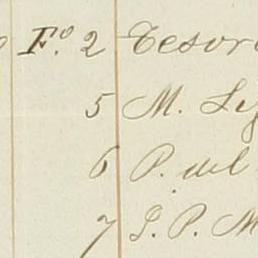 F.º 2 Tesor
5 M. Ley
6 P. del
7 S. P. M